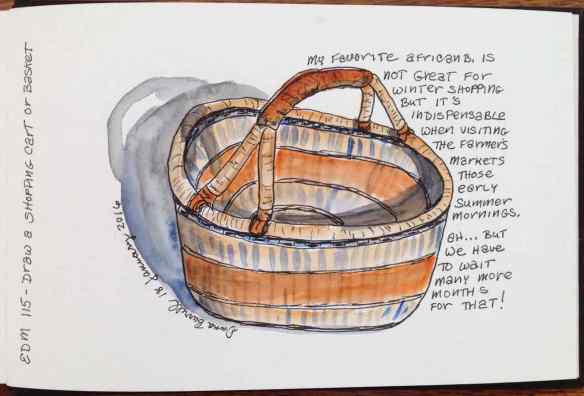 EDM 115 - Draw a shopping cart or basket
My favorite africanB. is
not great for
winter shopping
but it's
indispensable
when visiting
the farmer's
markets
those
early
summer
mornings.
eh... but
we have
to wait
many more
months
for that!
18 January 2014